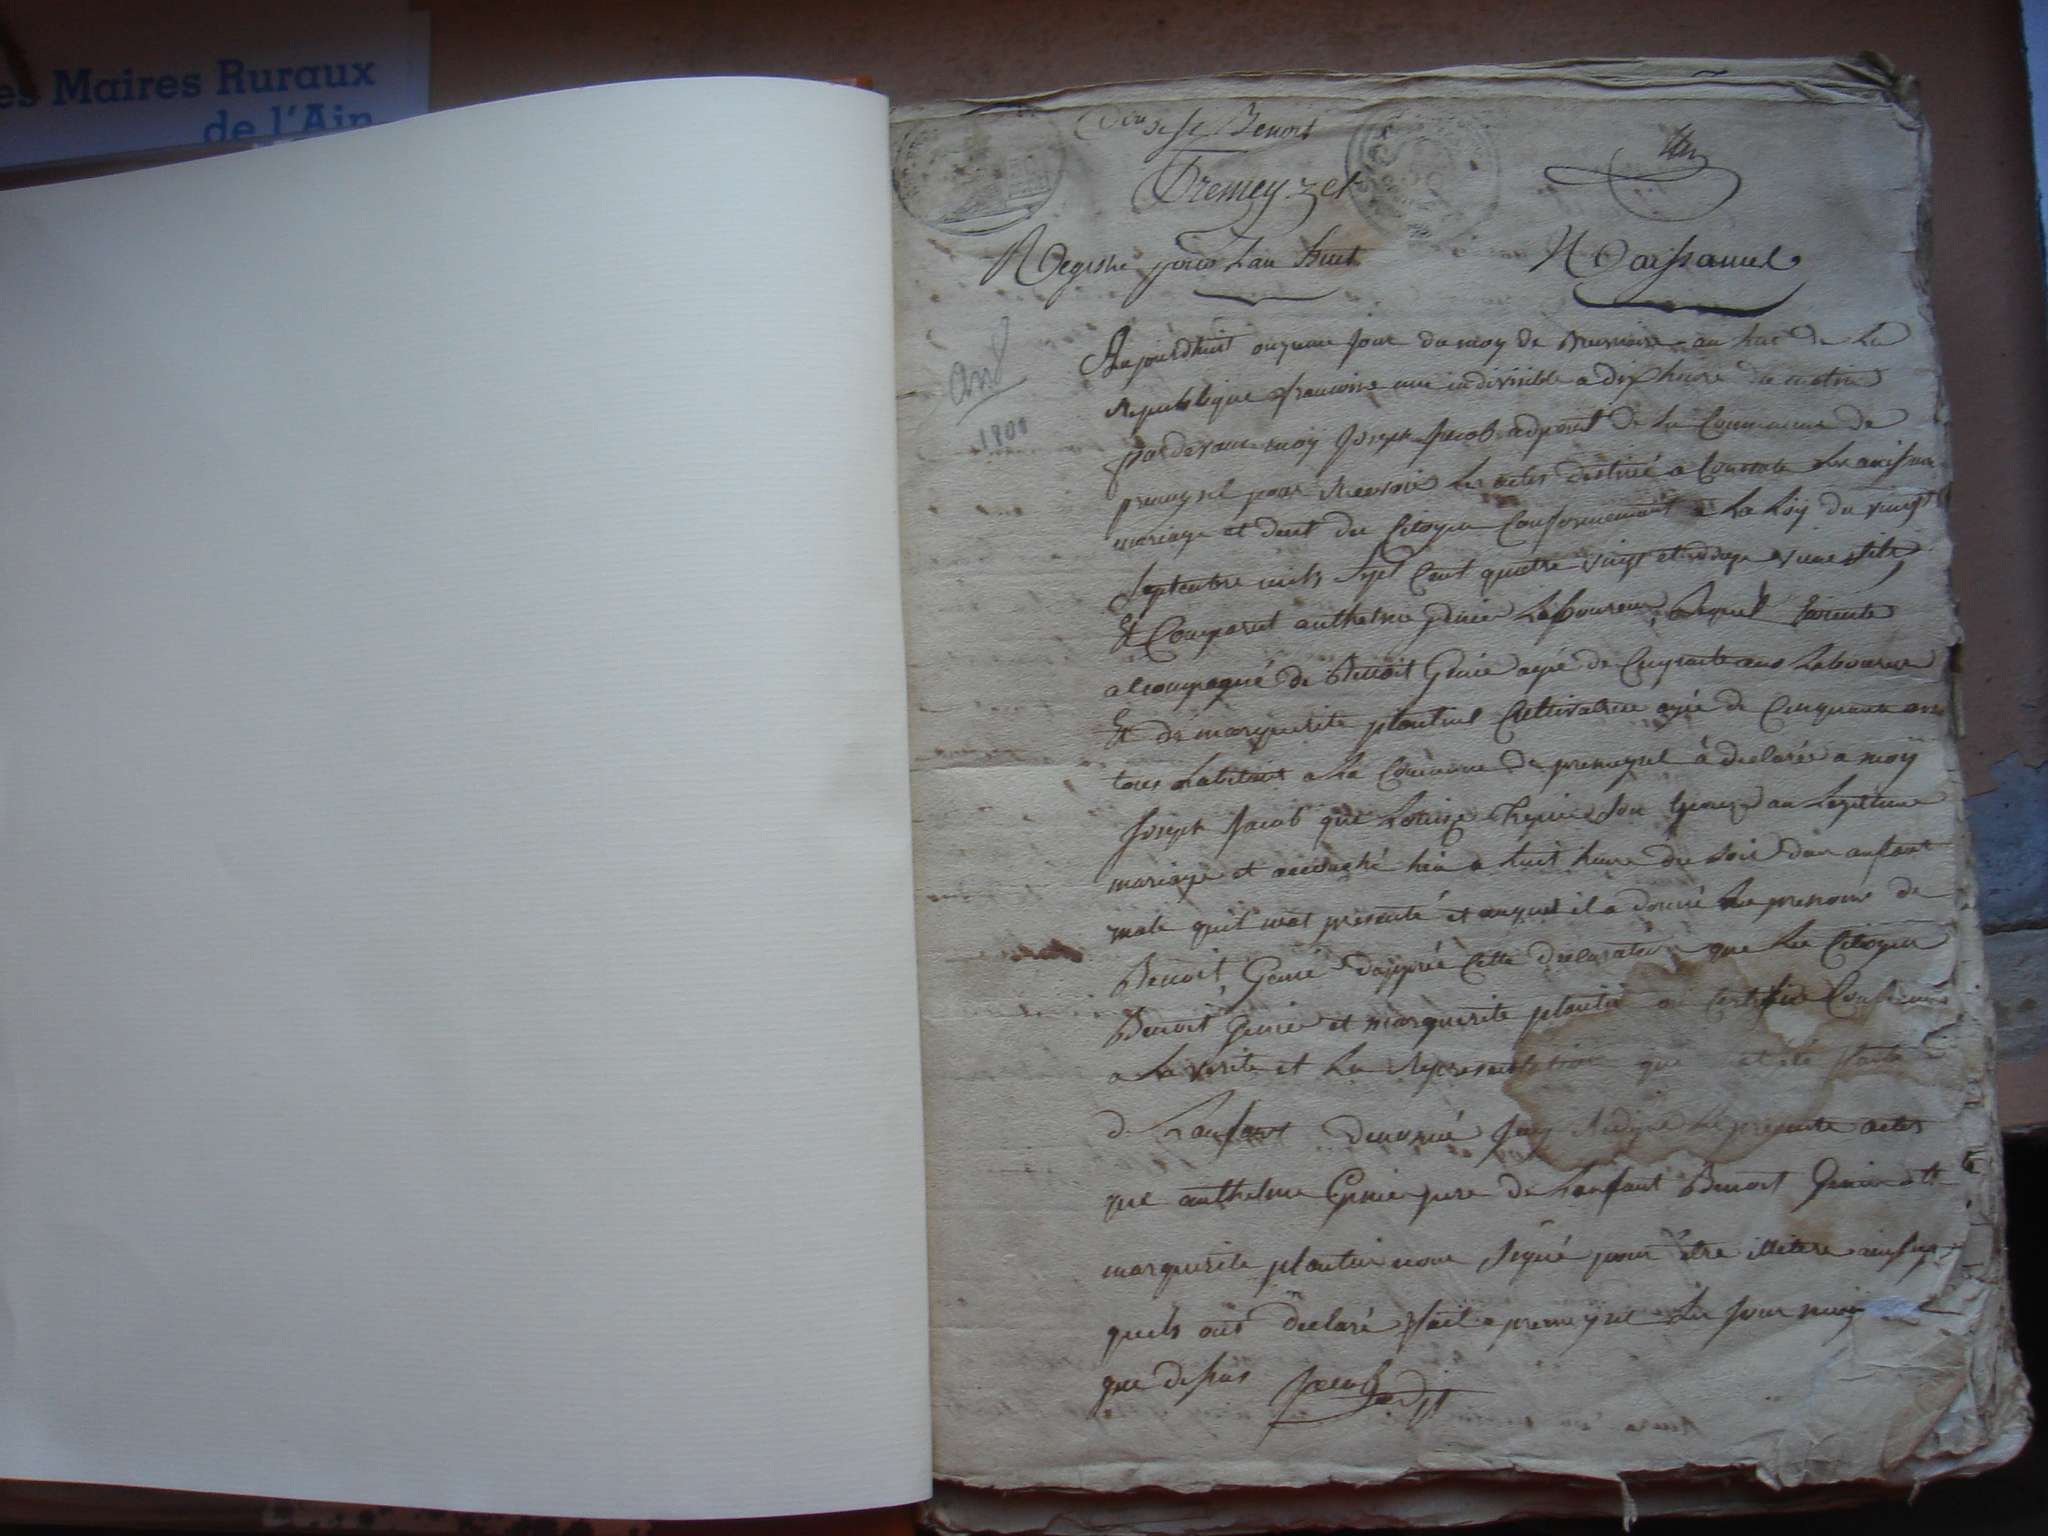 es Maires Ruraux
de l'Ain
de St Benoit
Premeyzel
Registre pour Lan huit
Naissance
an 8
1800
Aujourdhuit onzieme jour du moy de Brumaire an huit de La
Republique francoise une indivisible a dix heure du matin
par devant moy Joseph Jacob adjoint de La Commune de
premeyzel pour Recevoir Les actes destiné a Constate Les naissance
mariage et decet des Citoyen Conformement a La Loy du vingt
Septembre mils Sept Cent quatre vingt et
Et Comparut anthelme Genie Laboureur Lequel
accompagné de Benoit Genie agée de Cinquante ans Laboureur
Et de marguerite plantin Cultivatrice agée de Cinquante ans
tous habitant a La Commune de premeyzel à declarée a moy
Joseph Jacob que Louise son en Legitime
mariage et accouché hier a huit heure du soir dun anfant
male quil mat presenté et auquel il a donné Les prenoms de
Benoit Genie dapprée Cette declaration que Les Citoyen
Benoit Genie et marguerite plantin on Certifiée Conforme
a La verite et La Representation qui et eté faite
de Lanfant denomé Jay Redigé Le presente actes
que anthelme Genie pere de Lanfant Benoit Genie et
marguerite plantin nont signé pour être illetere ainsy
quels ont declaré fait a premeyzel Les jour moy et
que dessus Jacob adjt